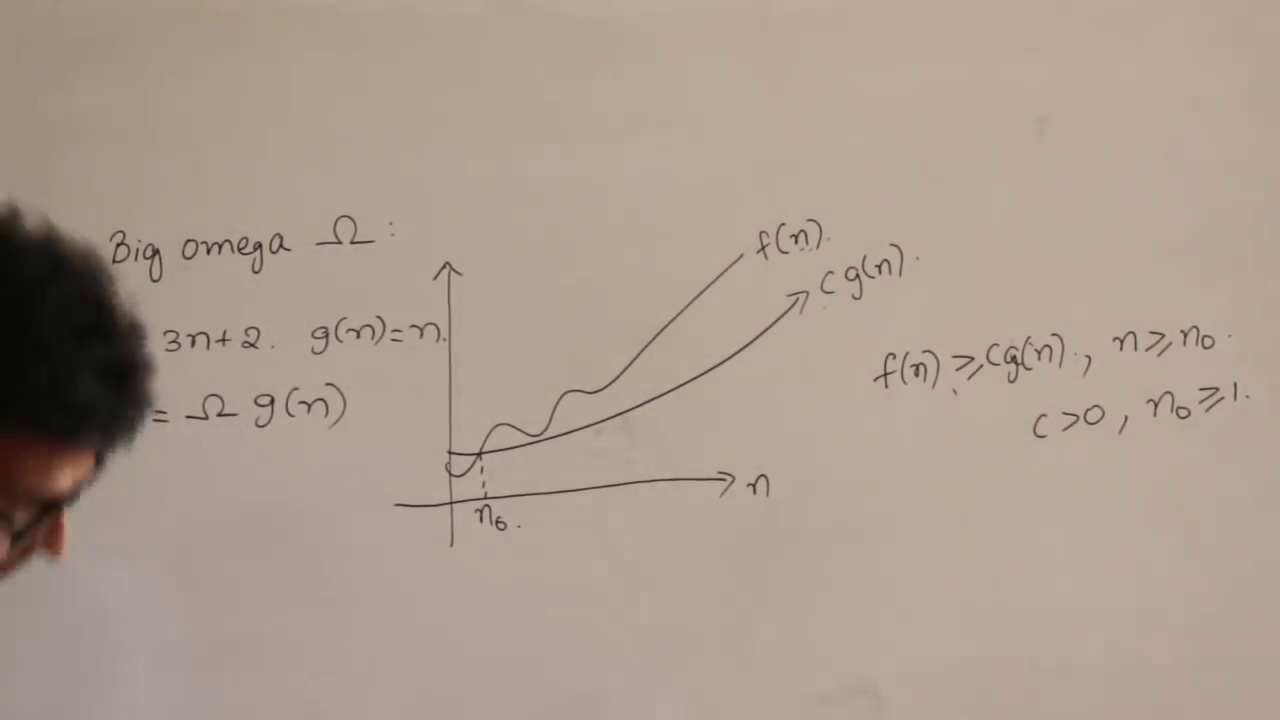 Big omega Ω :
3n+2. g(n)=n.
= Ω g(n)
f(n).
c g(n).
n
n₀.
f(n) ≥ cg(n)., n ≥ n₀.
c > 0, n₀ ≥ 1.